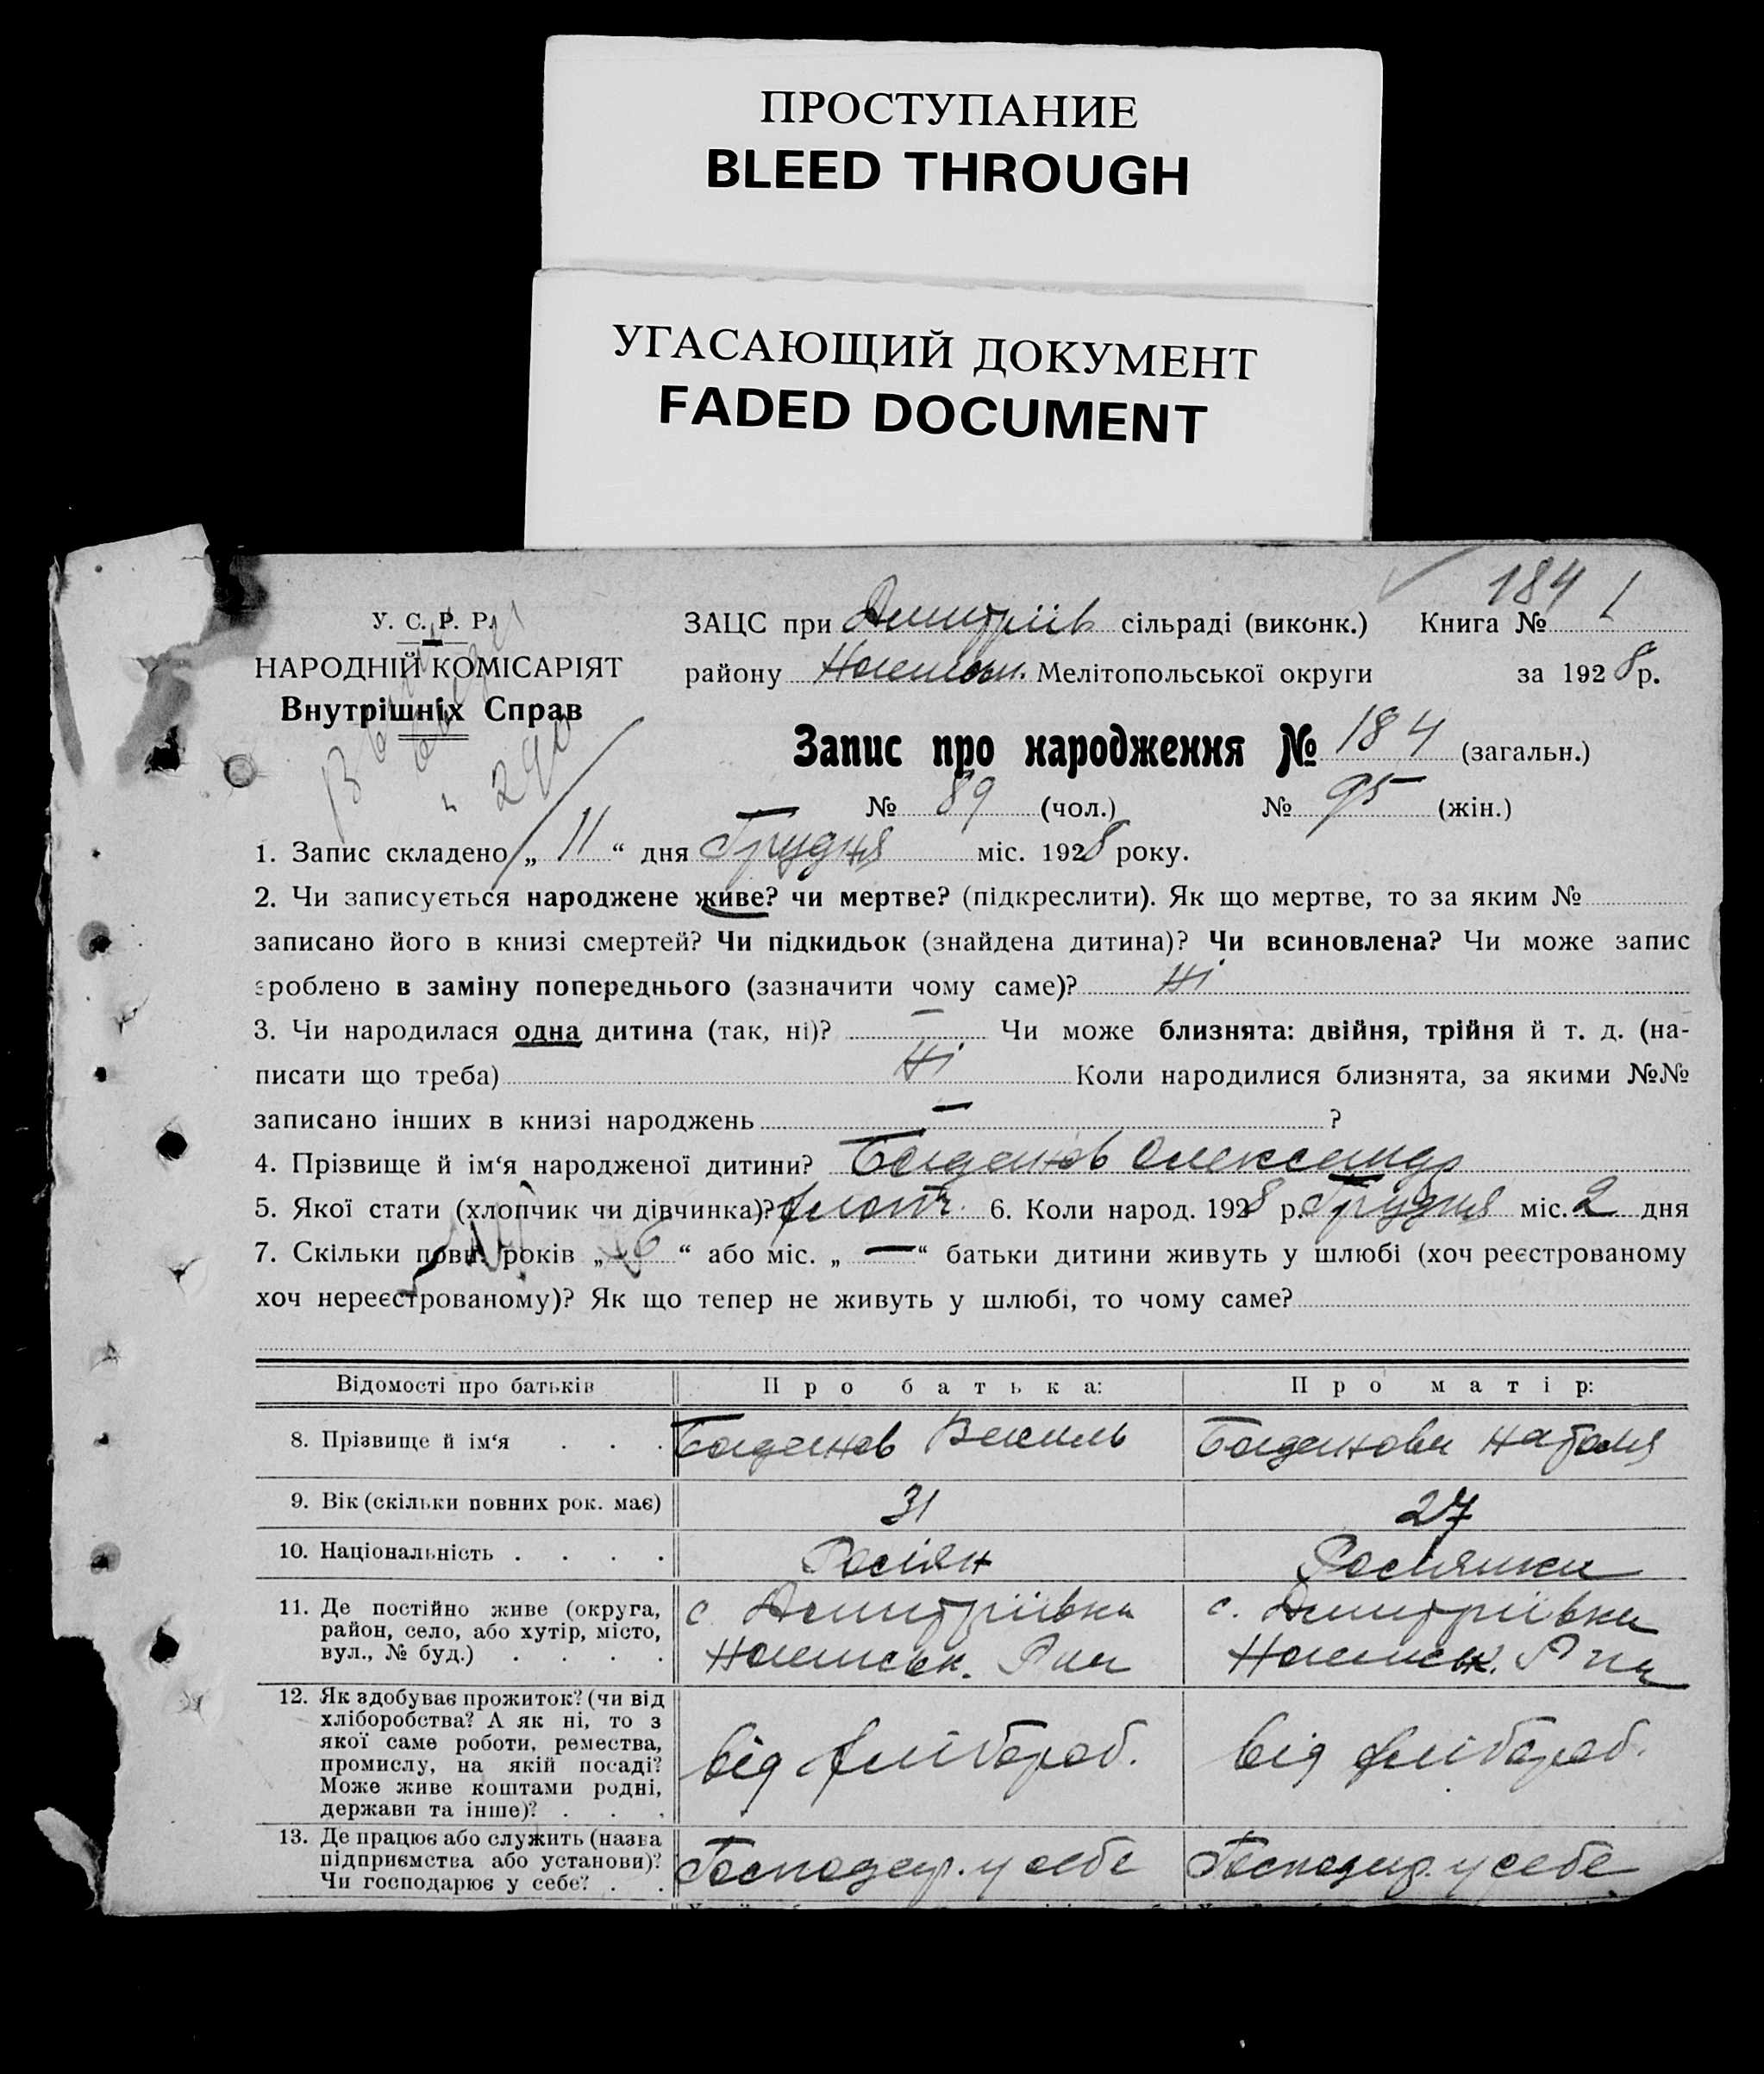 ПРОСТУПАНИЕ
BLEED THROUGH
УГАСАЮЩИЙ ДОКУМЕНТ
FADED DOCUMENT
184
У. С. Р. Р.
НАРОДНІЙ КОМІСАРІЯТ
Внутрішніх Справ
ЗАЦС при Дмитріів сільраді (виконк.) Книга № 1
району Мелітопольської округи за 1928 р.
Запис про народження № 184 (загальн.)
№ 89 (чол.) № 95 (жін.)
1. Запис складено „ 11 “ дня Грудня міс. 1928 року.
2. Чи записується народжене живе? чи мертве? (підкреслити). Як що мертве, то за яким №
записано його в книзі смертей? Чи підкидьок (знайдена дитина)? Чи всиновлена? Чи може запис
зроблено в заміну попереднього (зазначити чому саме)? Ні
3. Чи народилася одна дитина (так, ні)? — Чи може близнята: двійня, трійня й т. д. (на-
писати що треба) Ні Коли народилися близнята, за якими №№
записано інших в книзі народжень — ?
4. Прізвище й ім‘я народженої дитини? Богданов Олександр
5. Якої стати (хлопчик чи дівчинка)? хлопч. 6. Коли народ. 1928 р. Грудня міс. 2 дня
7. Скільки повн. років „ “ або міс. „ — “ батьки дитини живуть у шлюбі (хоч реєстрованому
хоч нереєстрованому)? Як що тепер не живуть у шлюбі, то чому саме?
Відомості про батьків Про батька: Про матір:
8. Прізвище й ім‘я . . . Богданов Василь Богданова Наталя
9. Вік (скільки повних рок. має) 31 27
10. Національність . . . . Росіян Росіянка
11. Де постійно живе (округа,
район, село, або хутір, місто,
вул., № буд.) . . . .
с. Дмитріівка
Р на
с. Дмитріівка
Р на
12. Як здобуває прожиток? (чи від
хліборобства? А як ні, то з
якої саме роботи, ремества,
промислу, на якій посаді?
Може живе коштами родні,
держави та інше)? . . .
від хлібороб.
від хлібороб.
13. Де працює або служить (назва
підприємства або установи)?
Чи господарює у себе? . .
Господар. у себе
Господар. у себе